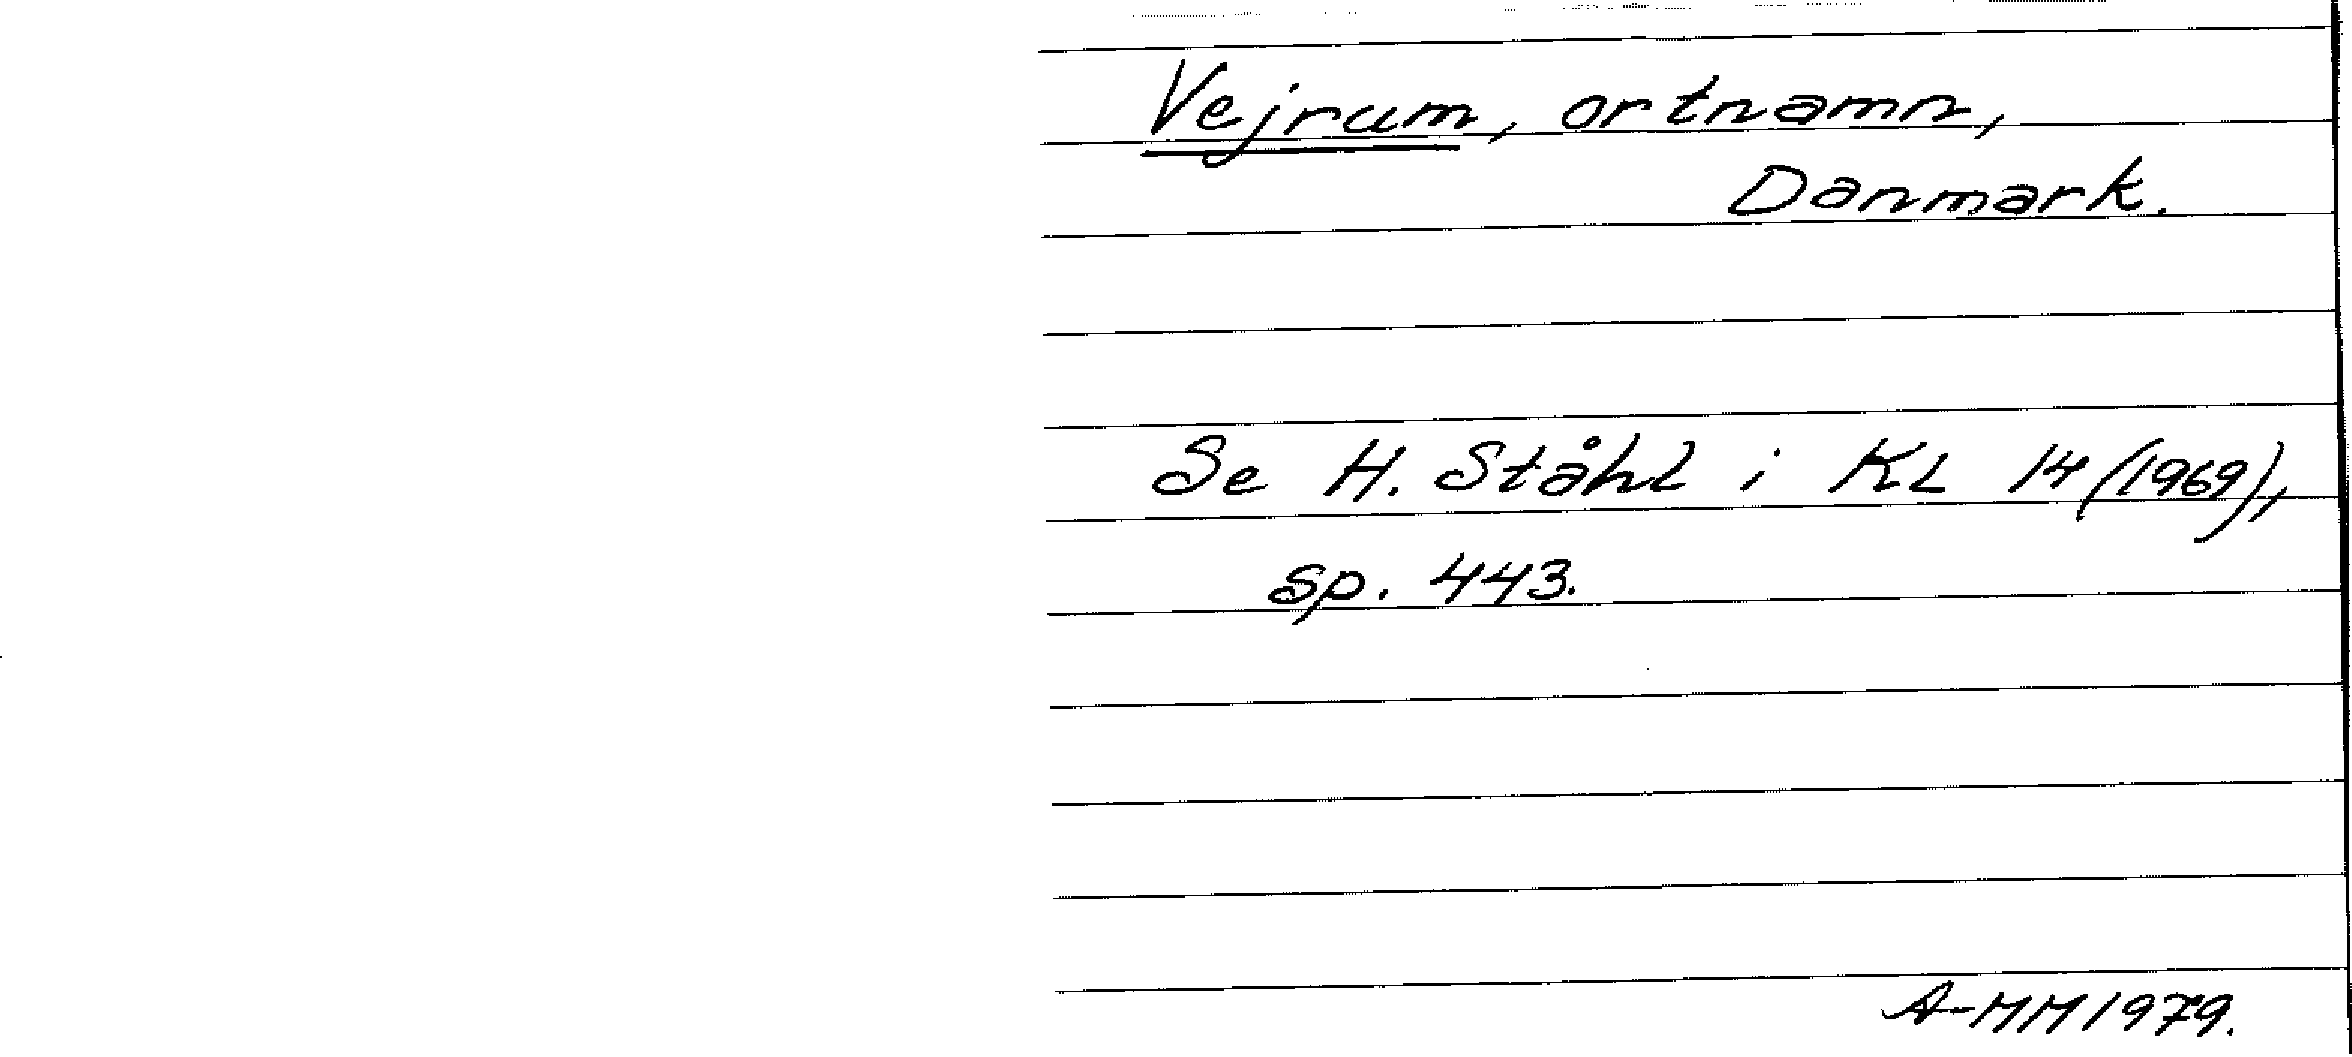 Vejrum, ortnamn,
Danmark.
Se H. Ståhl i KL 14 (1969),
sp. 443.
A-MM 1979.